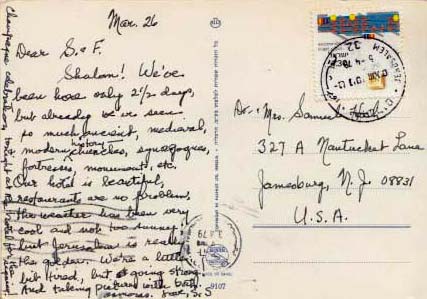 Mar. 26
Dear S & F.
Shalom! We've
been here only 2 1/2 days,
but already we've seen
so much ancient, medieval,
modern history
churches, synagogues,
fortresses, monuments, etc.
Our hotel is beautiful,
restaurants are no problem,
the weather has been very
cool and not too sunny,
but Jerusalem is really
the golden. We're a little
bit tired, but going strong.
And taking pictures with both
cameras. Love, S.
Champagne celebration tonight at the hotel for the
Dr. Mrs. Samuel
327 A Nantucket Lane
Jamesburg, N.J. 08831
U.S.A.
JERUSALEM
9107